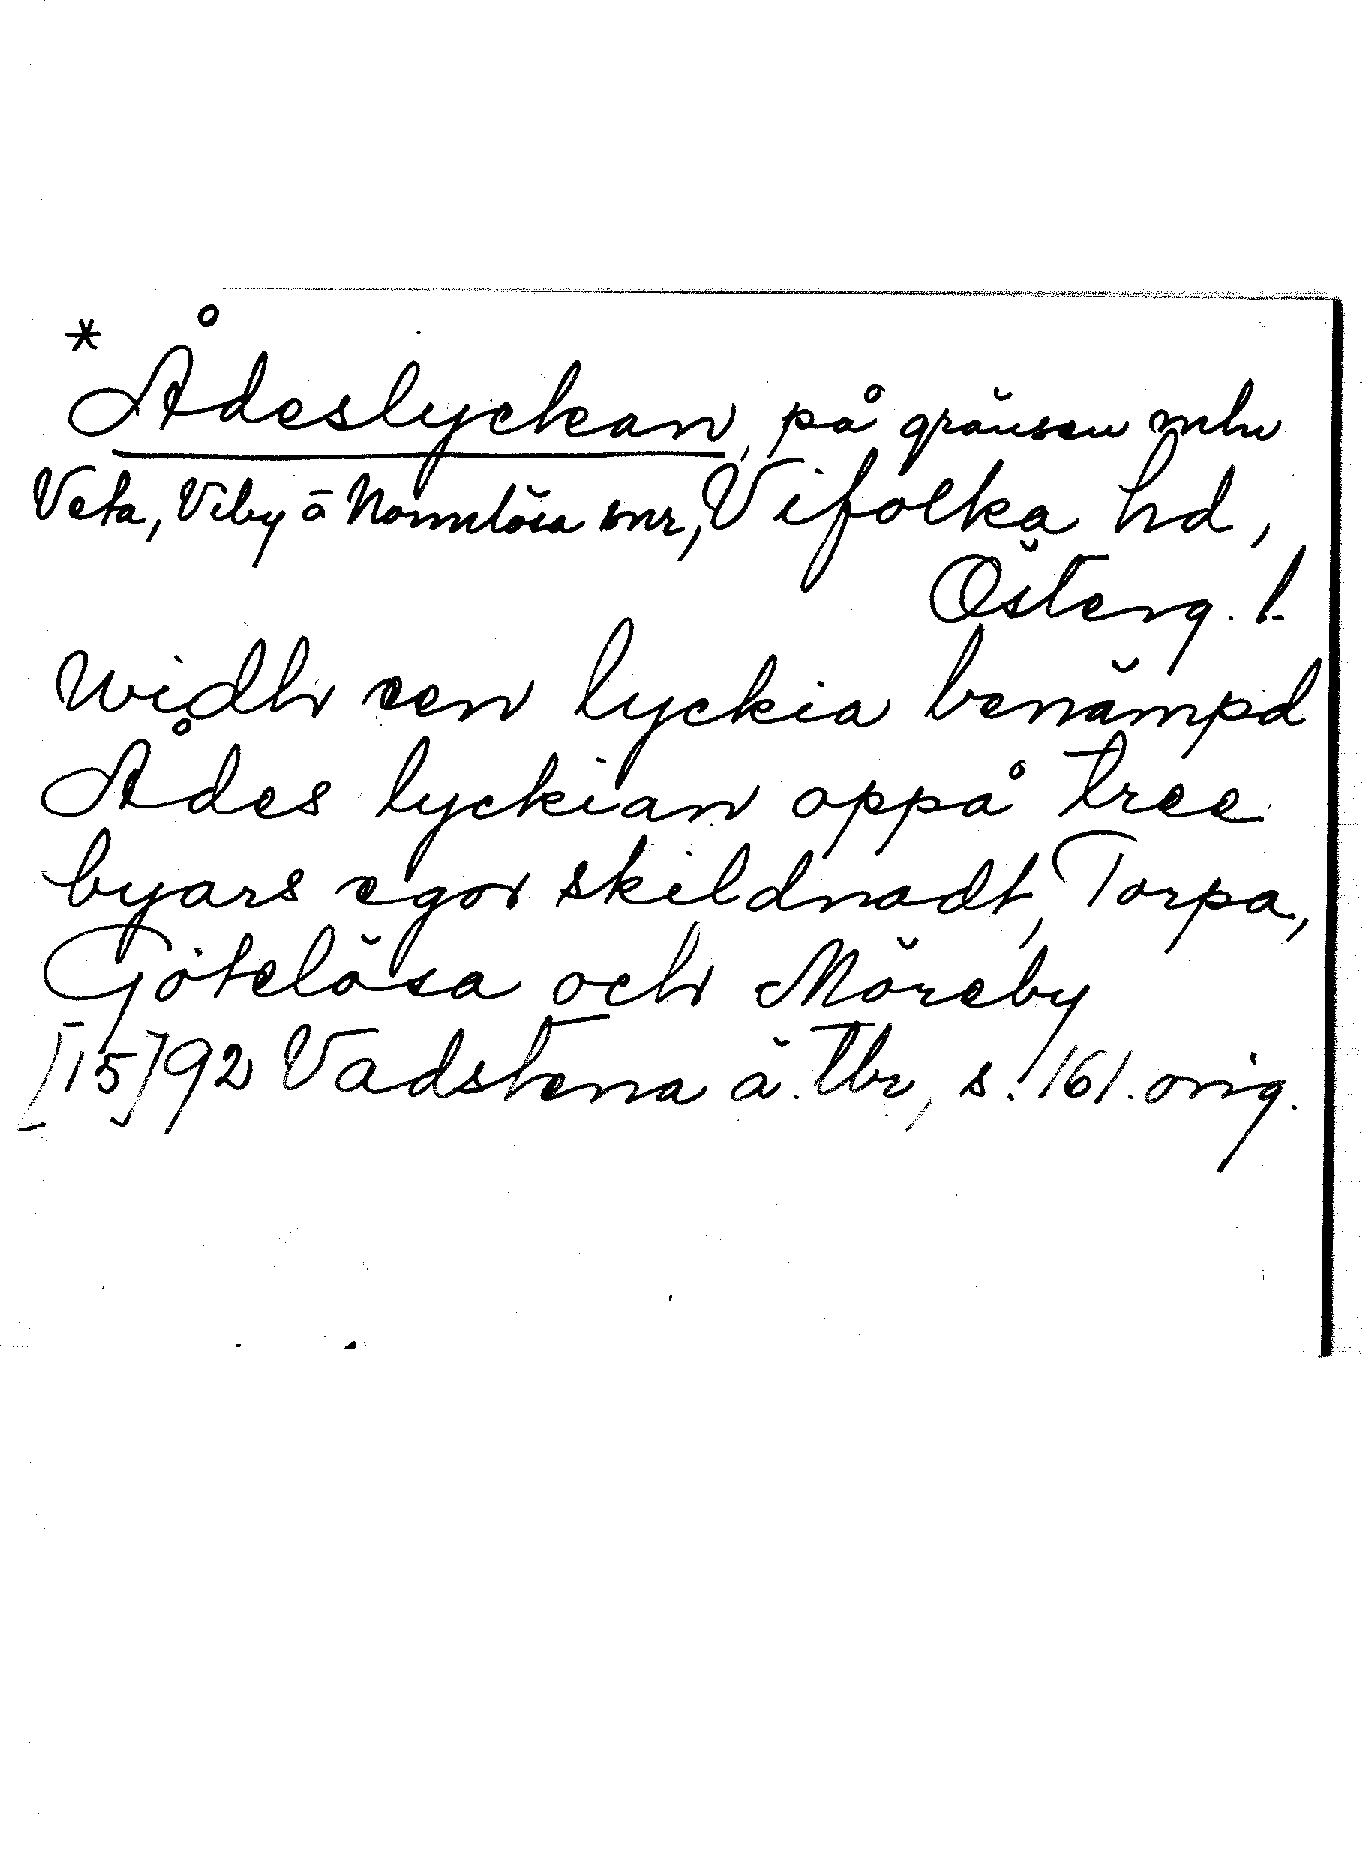 * Ådeslyckan, på gränsen mln
Veta, Viby o Normlösa snr, Vifolka hd,
Österg. l.
Widh een lyckia benämpd
Ådes lyckian oppå tree
byars egor skildnadt, Torpa,
Götelösa och Möreby
[15]92 Vadstena ä. tbr, s. 161. orig.